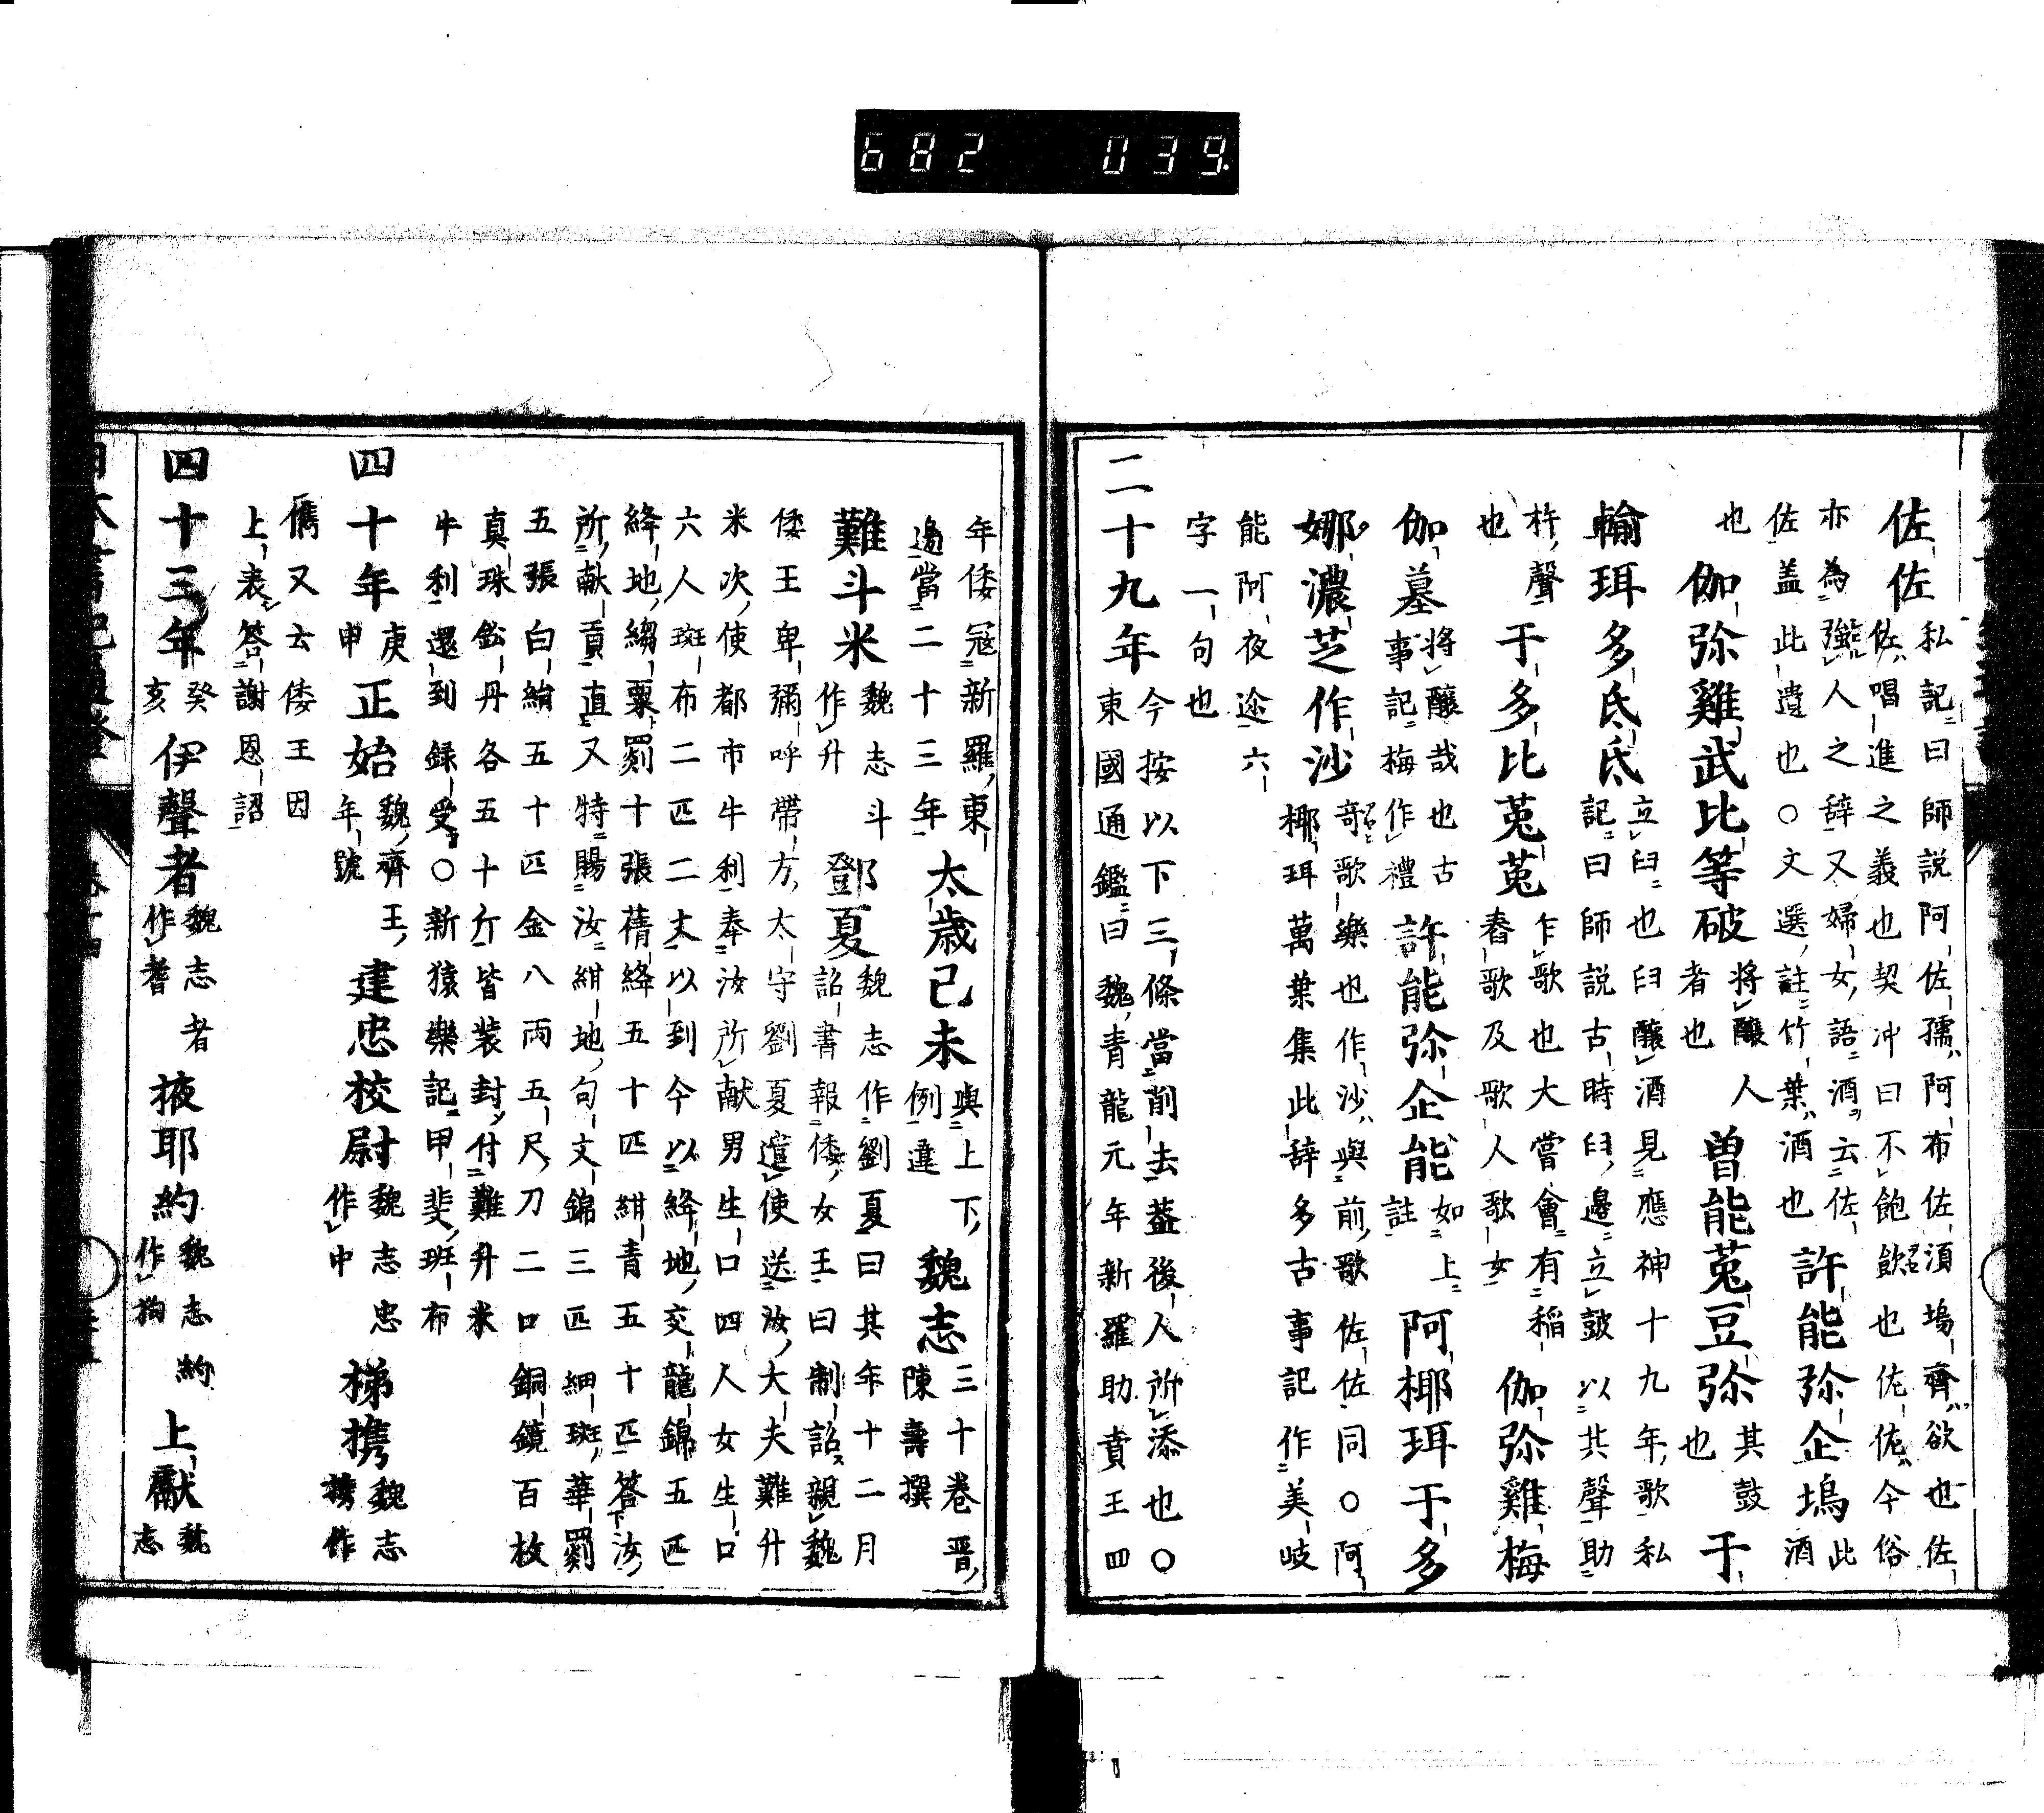 682 039
佐佐私記曰師説阿佐孺阿布佐湏塢齊欲也佐
佐唱進之義也契冲曰不飽飲也佐佐今俗
亦為強人之辞又婦女語酒云佐 許能弥企塢此酒
佐蓋此遺也○文選註竹葉酒也
也 伽弥雞武比等破将醸人者也 曽能菟豆弥其鼓也 于
輸珥多氐氐立臼也臼醸酒見應神十九年歌私
記曰師説古時臼邉立鼓以其聲助
杵聲也 于多比菟菟乍歌也大嘗會有稲
舂歌及歌人歌女 伽弥雞梅
伽墓将醸哉也古事記梅作禮 許能弥企能如上註 阿椰珥于多
娜濃芝作沙奇歌樂也作沙與前歌佐佐同○阿
椰珥萬葉集此辞多古事記作美岐
能阿夜迩六
字一句也
二十九年今按以下三條當削去蓋後人所添也○
東國通鑑曰魏青龍元年新羅助賁王四
年倭冦新羅東
邉當二十三年 太歳己未與上下例違 魏志三十卷晋陳壽撰
難斗米魏志斗作升 鄧夏魏志作劉夏曰其年十二月
詔書報倭女王曰制詔親魏
倭王卑彌呼帶方太守劉夏遣使送汝大夫難升
米次使都市牛利奉汝所献男生口四人女生口
六人斑布二匹二丈以到今以絳地交龍錦五匹
絳地縐粟罽十張蒨絳五十匹紺青五十匹答汝
所献貢直又特賜汝紺地句文錦三匹細斑華罽
五張白絹五十匹金八兩五尺刀二口銅鏡百枚
真珠鈆丹各五十斤皆装封付難升米
牛利還到録受○新猿樂記甲斐班布
四十年庚申 正始魏齊王年號 建忠校尉魏志忠作中 梯携魏志携作
儁又云倭王因
上表答謝恩詔
四十三年癸亥 伊聲者魏志者作耆 掖耶約魏志約作狗 上獻魏志